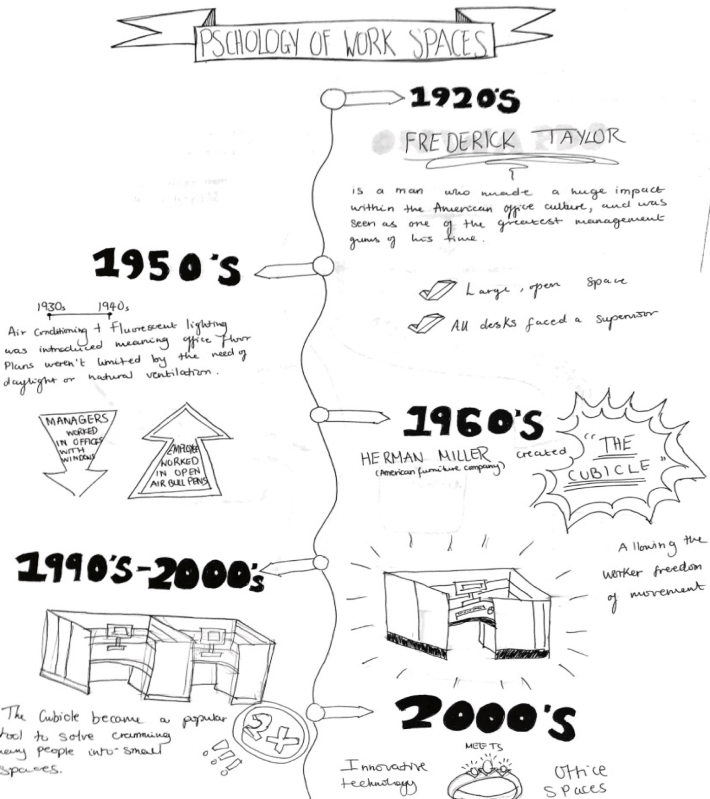 PSCHOLOGY OF WORK SPACES
1920'S
FREDERICK TAYLOR
is a man who made a huge impact
within the American office culture, and was
seen as one of the greatest management
gurus of his time.
Large, open Space
All desks faced a supervisor
1950'S
1930s 1940s
Air Conditioning + Fluorescent lighting
was introduced meaning office floor
Plans weren't limited by the need of
daylight or natural ventilation.
MANAGERS
WORKED
IN OFFICES
WITH
WINDOWS
EMPLOYEE
WORKED
IN OPEN
AIR BULL PENS
1960'S
HERMAN MILLER created
(American furniture company)
"THE
CUBICLE"
Allowing the
worker freedom
of movement
1990'S-2000's
The Cubicle became a popular
tool to solve cramming
many people into small
spaces.
2x
!!!
2000'S
Innovative
technology
MEETS
Office
Spaces